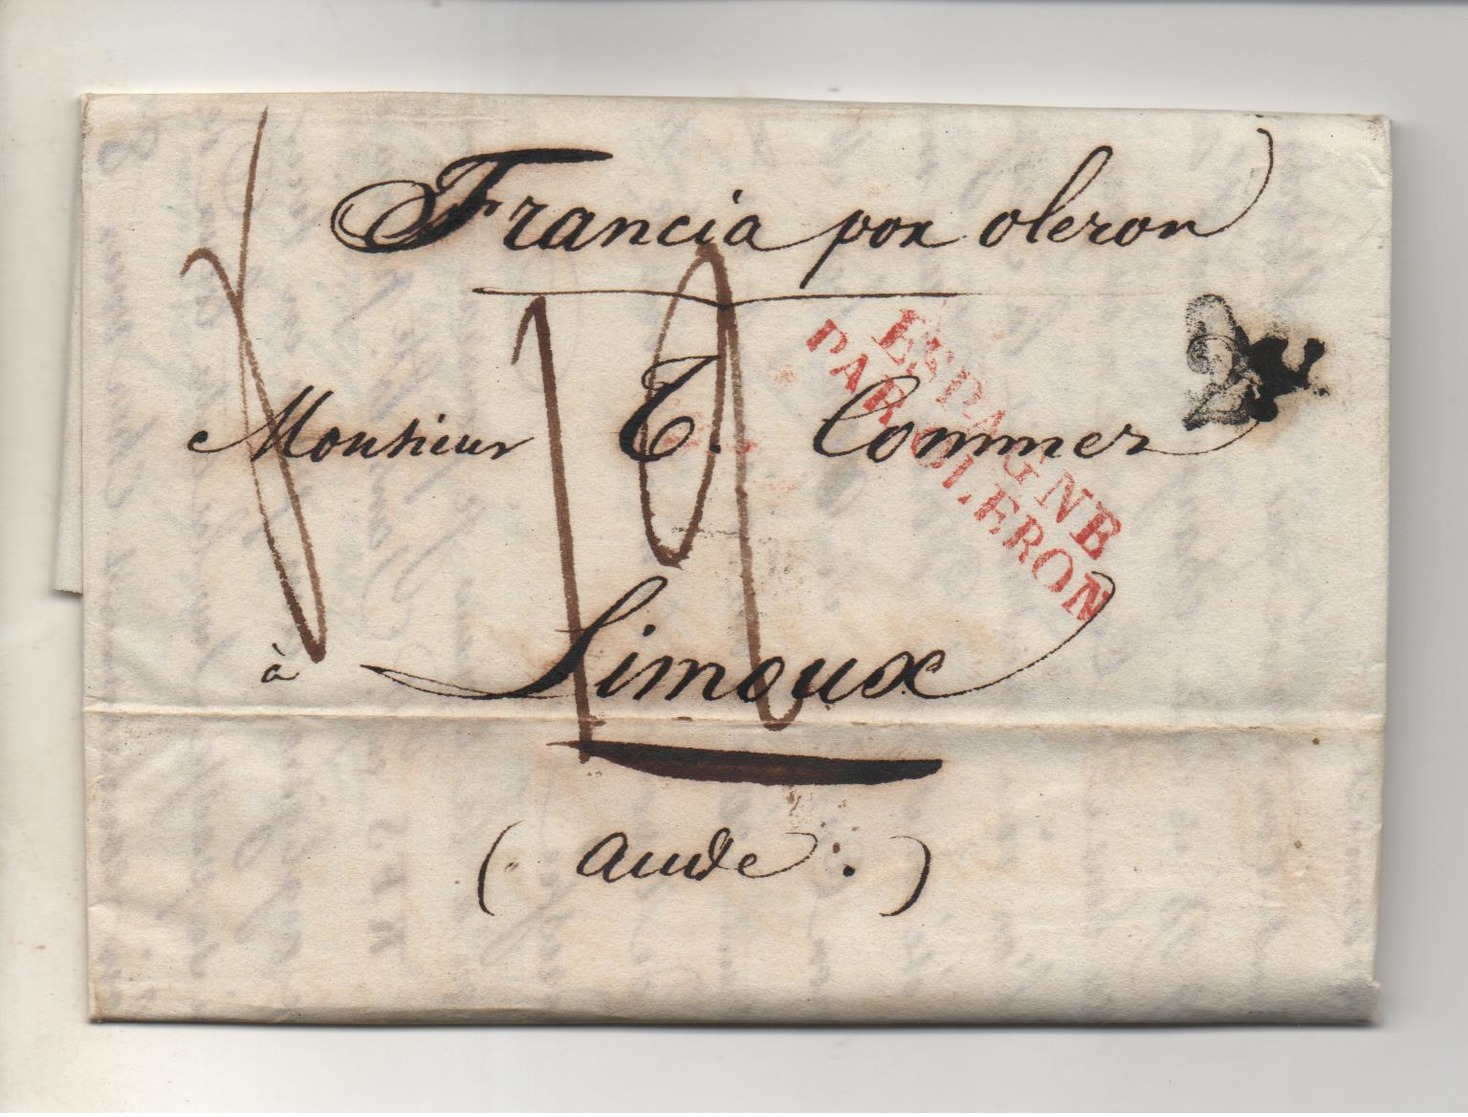 Francia por oleron
ESPAGNE
PAR OLERON
Monsieur T. Commer
à Limoux
(Aude.)
19